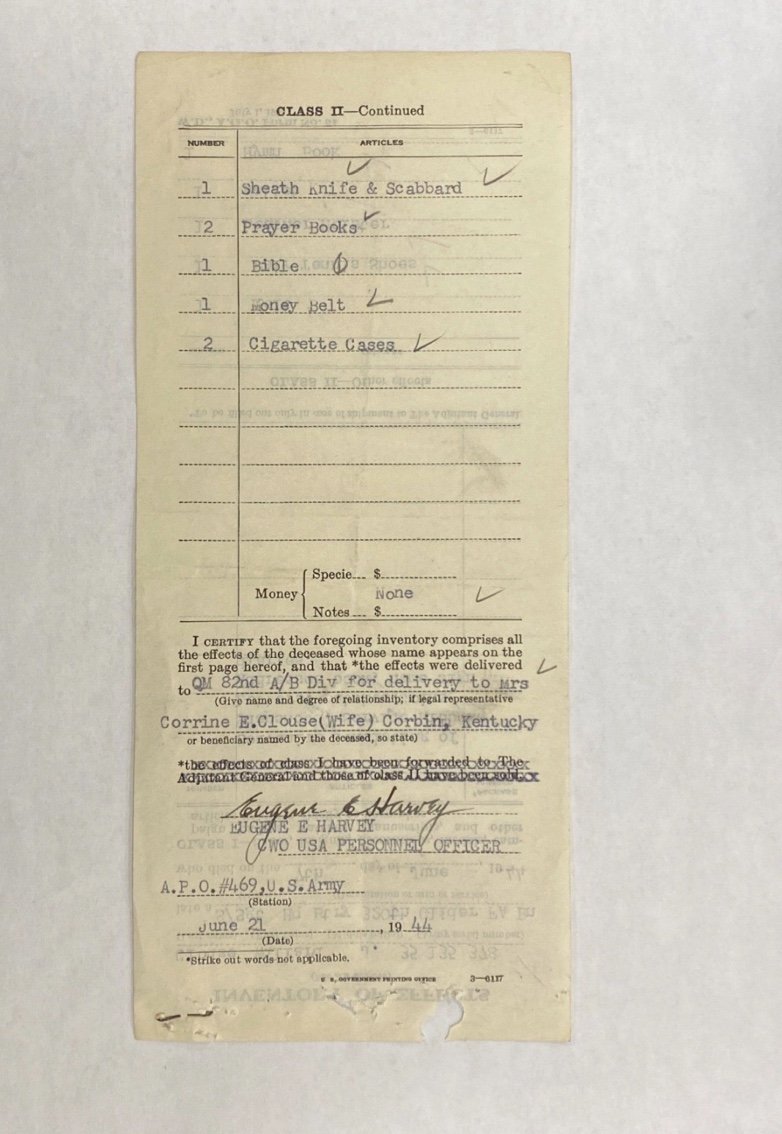 CLASS II—Continued
NUMBER ARTICLES
1 Sheath Knife & Scabbard
2 Prayer Books
1 Bible
1 Money Belt
2 Cigarette Cases
Specie $
Money None
Notes $
I CERTIFY that the foregoing inventory comprises all
the effects of the deceased whose name appears on the
first page hereof, and that *the effects were delivered
to QM 82nd A/B Div for delivery to Mrs
(Give name and degree of relationship; if legal representative
Corrine E.Clouse(Wife) Corbin, Kentucky
or beneficiary named by the deceased, so state)
*the effects of class I have been forwarded to The
Adjutant General and those of class II have been sold.
Eugene E Harvey
EUGENE E HARVEY
CWO USA PERSONNEL OFFICER
A.P.O.#469,U.S.Army
(Station)
June 21, 19 44
(Date)
*Strike out words not applicable.
U. S. GOVERNMENT PRINTING OFFICE 3—6117